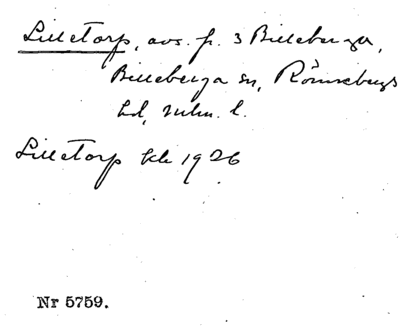 Lilletorp, avs. fr. 3 Billeberga,
Billeberga sn, Rönnebergs
hd, Malm. l.
Lilletorp kk 1926
Nr 5759.